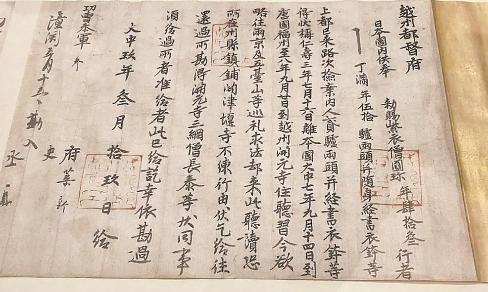 越州都督府
日本國内供奉 勅賜紫衣僧圓珍 年肆拾叁 行者
丁滿 年伍拾 驢兩頭并隨身經書衣鉢等
上都已來路次撿案内人貳驢兩頭并經書衣鉢等
得狀稱仁壽三年七月十六日離本國大中七年九月十四日到
唐國福州至八年九月廿日到越州開元寺住聽習今欲
略往兩京及五臺山等巡礼求法却來此聽讀恐
所在州縣鎮鋪關津堰寺不練行由伏乞給往
還過所勘得開元寺三綱僧長泰等狀同事
須給過所者准給者此已給訖幸依勘過
大中玖年叁月拾玖日給
府葉新
功曹參軍
史
潼關五月十五日勘入
丞